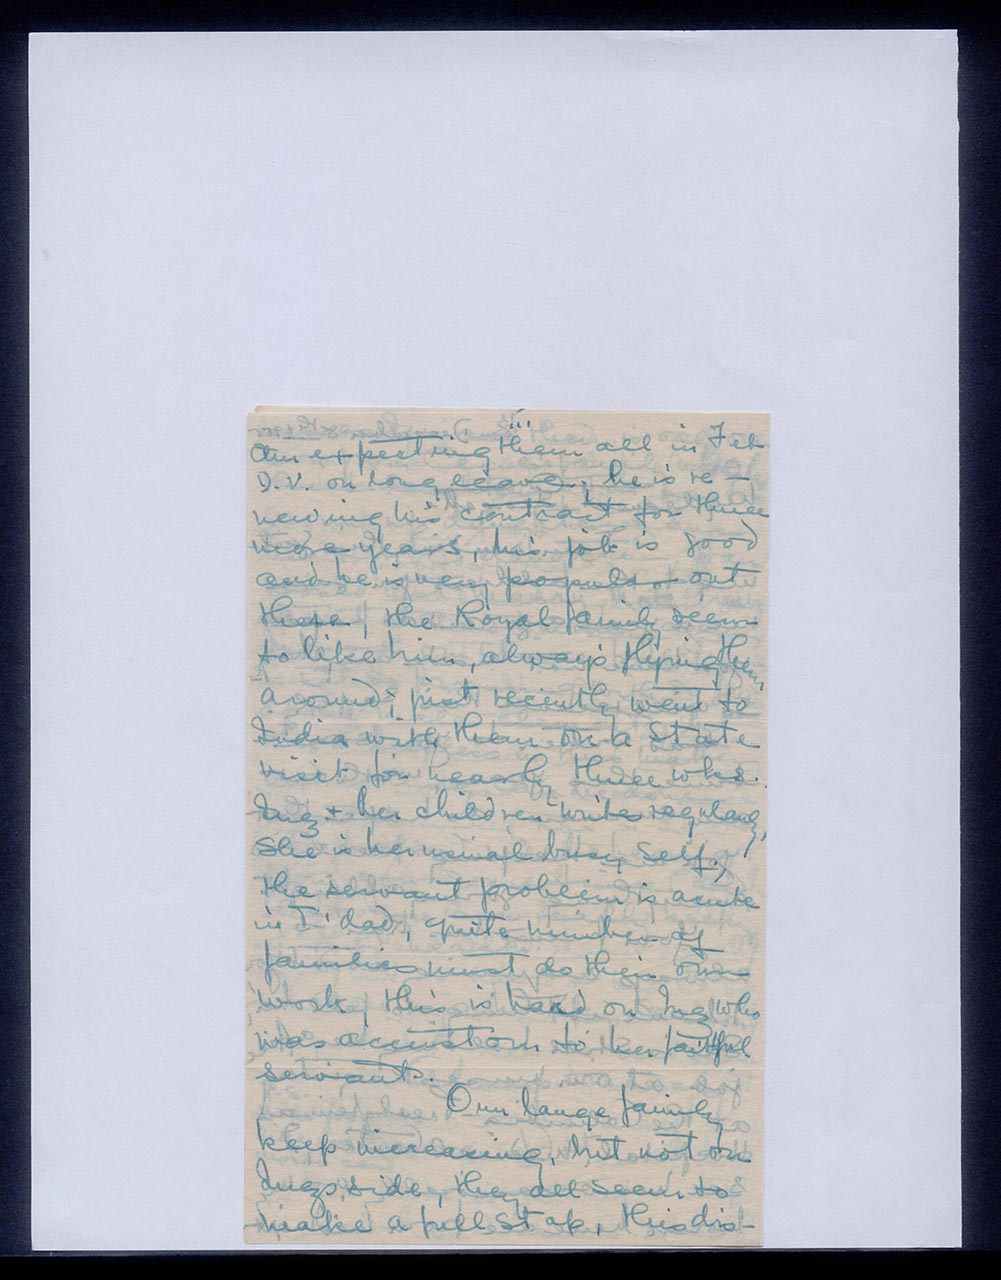 am expecting them all in Feb
D.V. on long leave, he is re-
newing his contract for three
more years, his job is good
and he is very popular out
there, the Royal family seem
to like him, always flying them
around, just recently went to
India with them on a State
visit for nearly three wks.
Ing & her children write regularly,
She is her usual busy self,
the servant problem is acute
in T'dad, quite number of
families must do their own
work, this is hard on Ing who
was accustom to her faithful
servants.
Our large family
keep increasing, but not on
Ings side, they all seem to
make a full stop, this dis-